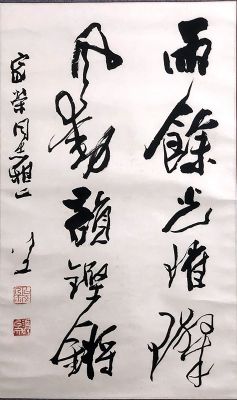 雨餘光璀璨
風動韻鏗鏘
富榮同志雅正